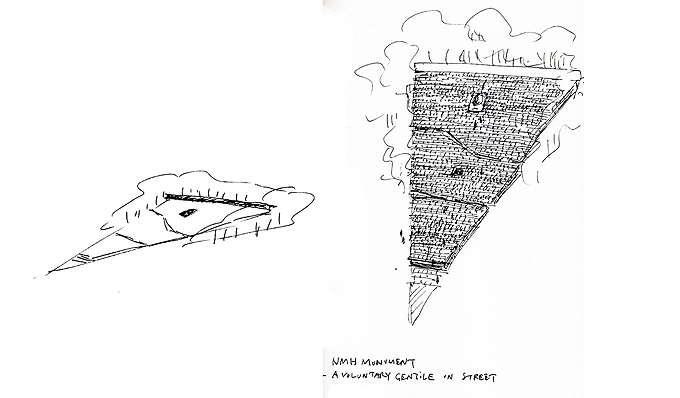 NMH MONUMENT
- A VOLUNTARY GENTILE IN STREET